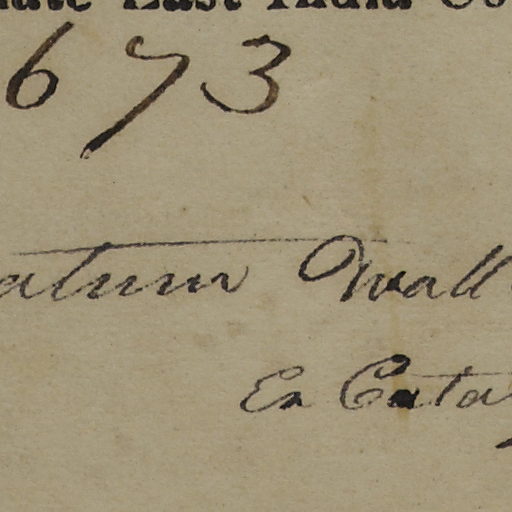 late East India Co
673
atum Wall
Ex Cata